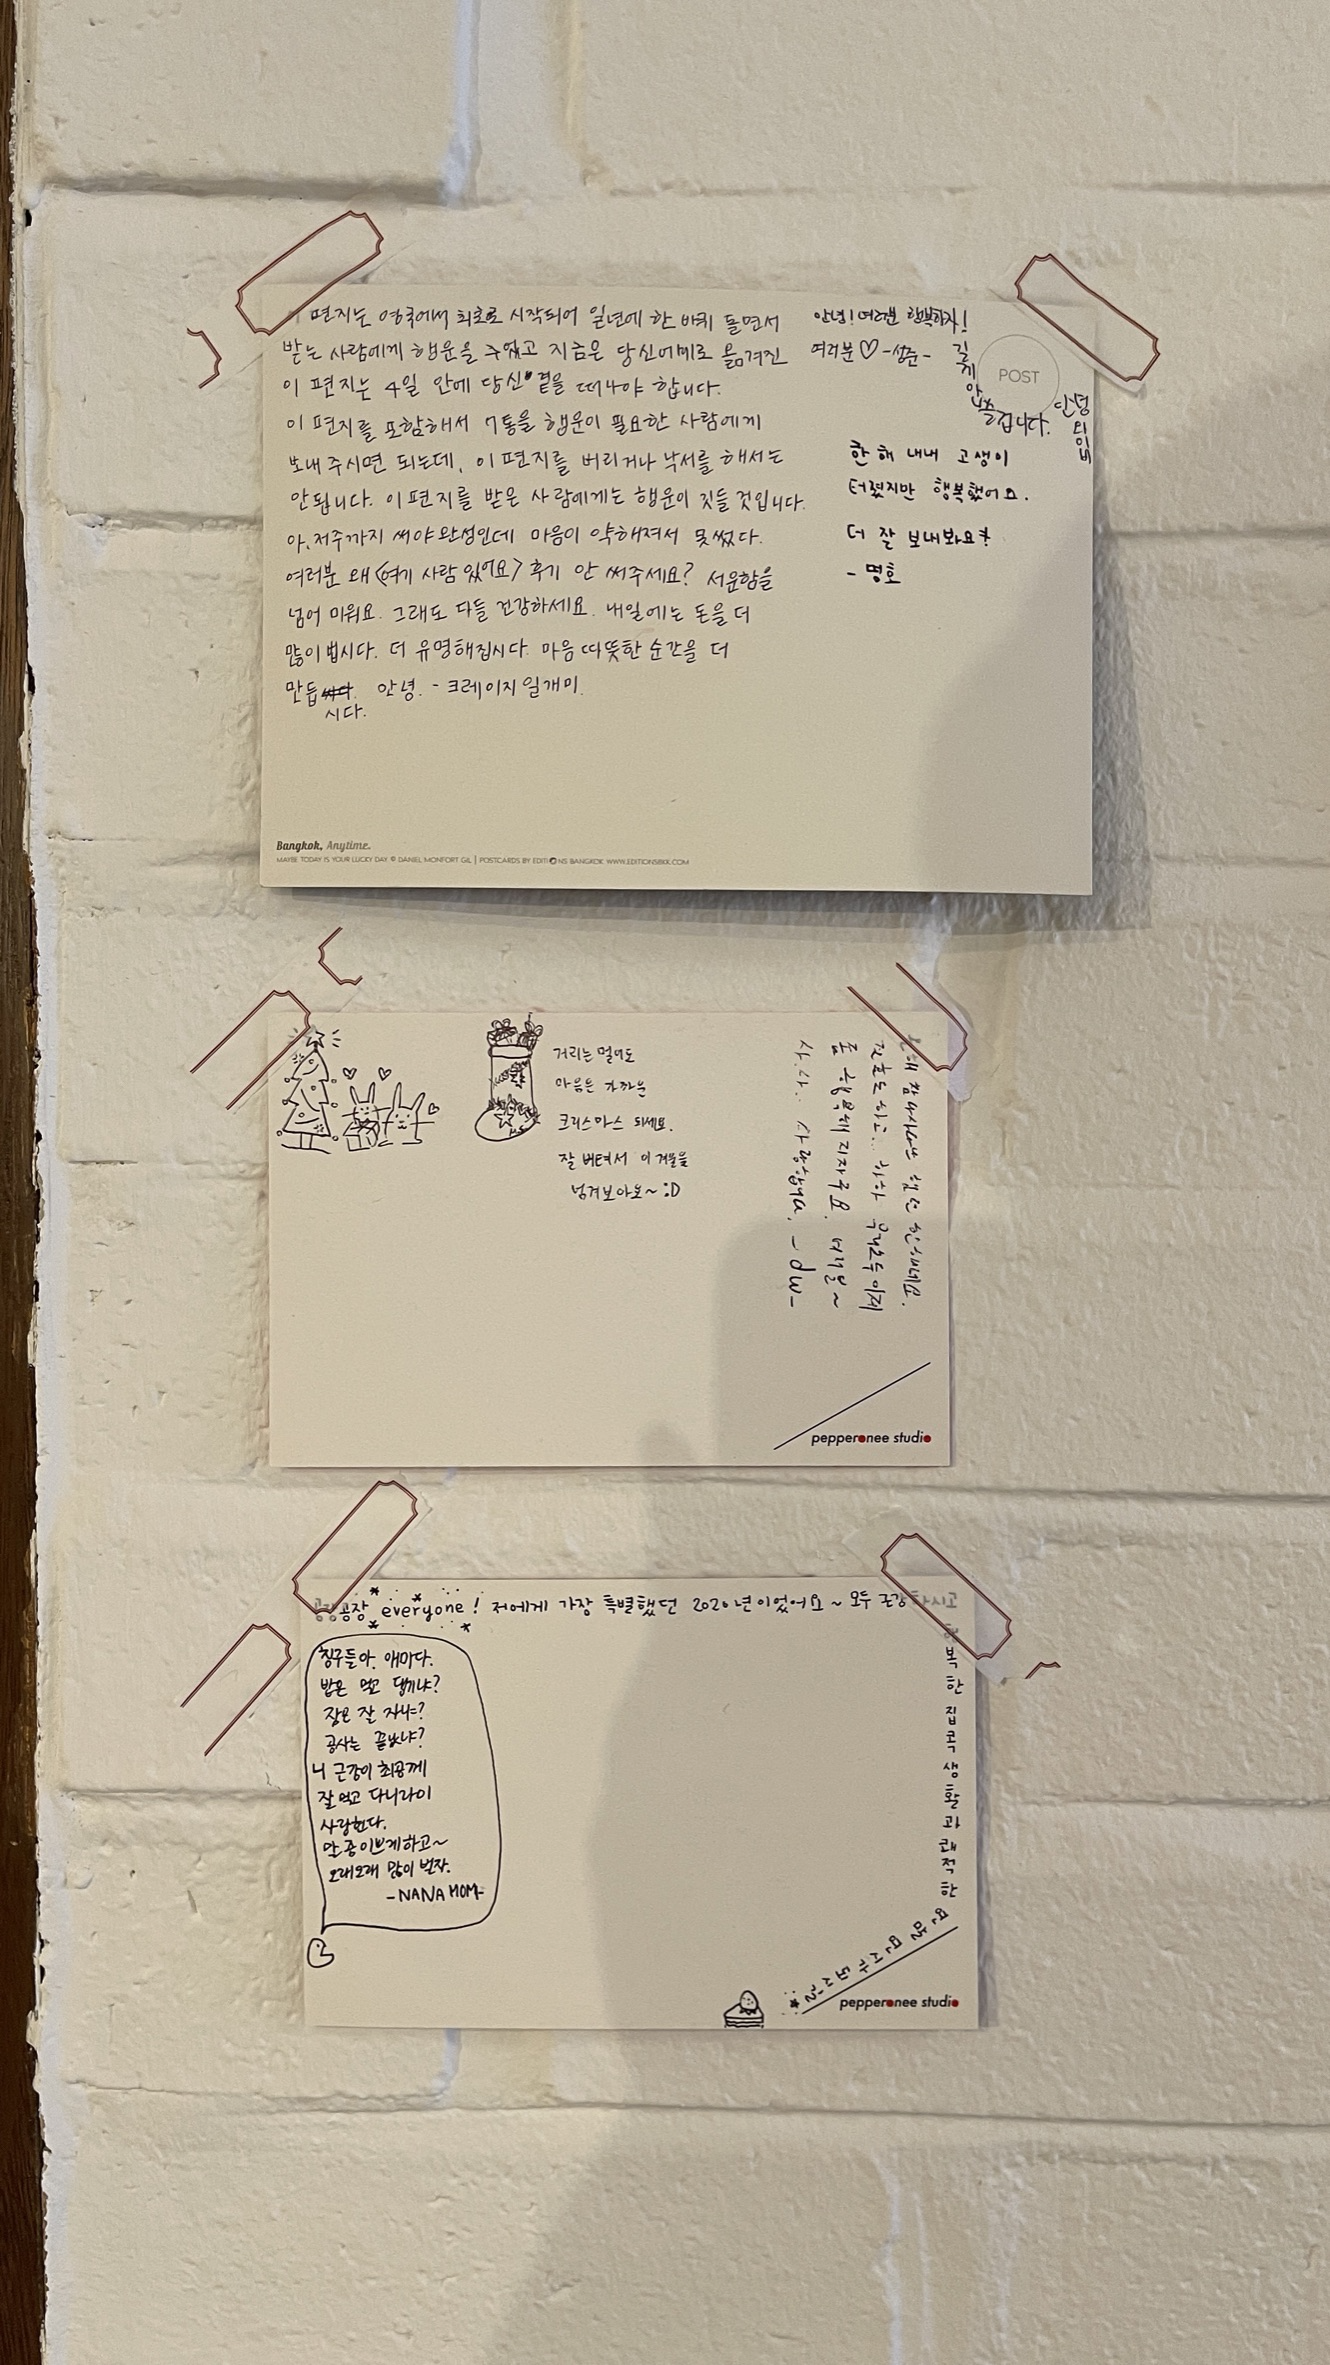 편지는 영국에서 최초로 시작되어 일년에 한 바퀴 돌면서
받는 사람에게 행운을 주었고 지금은 당신에게로 옮겨진
이 편지는 4일 안에 당신 곁을 떠나야 합니다.
이 편지를 포함해서 7통을 행운이 필요한 사람에게
보내 주시면 되는데, 이 편지를 버리거나 낙서를 해서는
안됩니다. 이 편지를 받은 사람에게는 행운이 깃들 것입니다.
아, 저주까지 써야 완성인데 마음이 약해져서 못썼다.
여러분 왜 <여기 사람 있어요> 후기 안 써주세요? 서운함을
넘어 미워요. 그래도 다들 건강하세요. 내일에는 돈을 더
많이 법시다. 더 유명해집시다. 마음 따뜻한 순간을 더
만듭
시다.
안녕. - 크레이지 일개미.
안녕! 여러분 행복하자!
여러분♡ -성준-
POST
길게 안 쓸겁니다.
안녕
한 해 내내 고생이
터졌지만 행복했어요.
더 잘 보내봐요?
- 명호
Bangkok, Anytime.
MAYBE TODAY IS YOUR LUCKY DAY © DANIEL MONFORT GIL | POSTCARDS BY EDITIONS BANGKOK WWW.EDITIONSBKK.COM
거리는 멀어도
마음은 가까운
크리스마스 되세요.
잘 버텨서 이 겨울을
넘겨보아요~ :D
해 참
하고... 하하 이제
좀 행복해지자구요.
사랑합니다. -dw-
pepperonee studio
공장 everyone! 저에게 가장 특별했던 2020년이었어요~ 모두 건강하시고
복한 집콕 생활과 쾌적한
친구들아. 애미다.
밥은 먹고 댕기냐?
잠은 잘 자냐?
공사는 끝났냐?
니 건강이 최공께
잘 먹고 다니라이
사랑헌다.
말 좀 이쁘게하고~
오래오래 많이 벌자.
-NANA MOM-
pepperonee studio